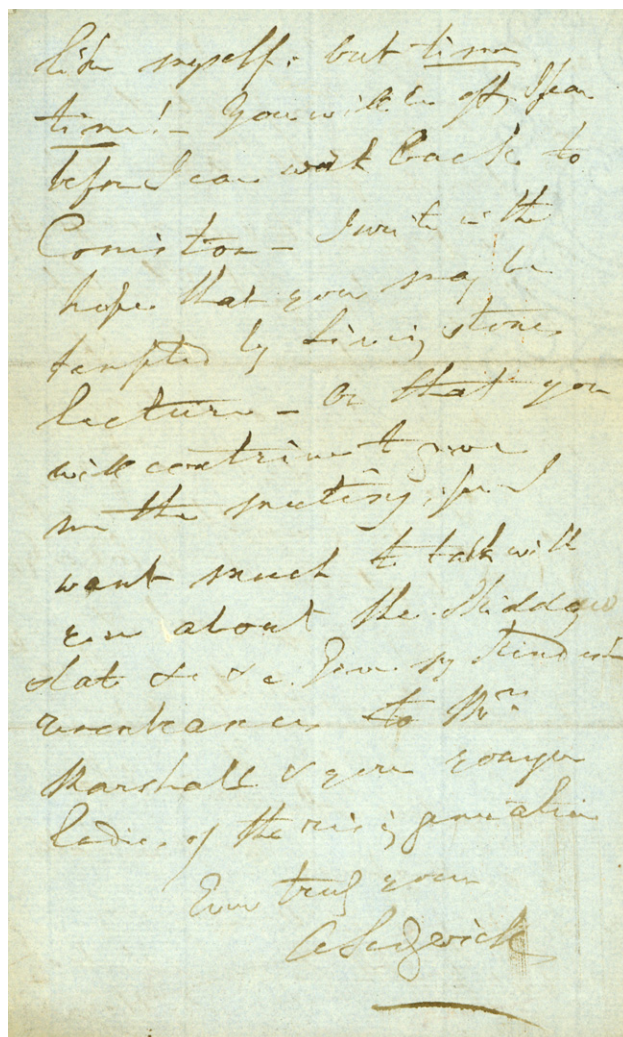 like myself: but time
time! – You will be off, I fear
before I can work back to
Coniston – I write in the
hope that you may be
tempted by Livingstone
lecture – Or that you
will contrive to give
me the meeting, for I
want much to talk with
you about the Skiddaw
slate &c &c. Give my kindest
remembrances to Mrs.
Marshall & your younger
ladies of the rising generation
Ever truly yours
A Sedgwick